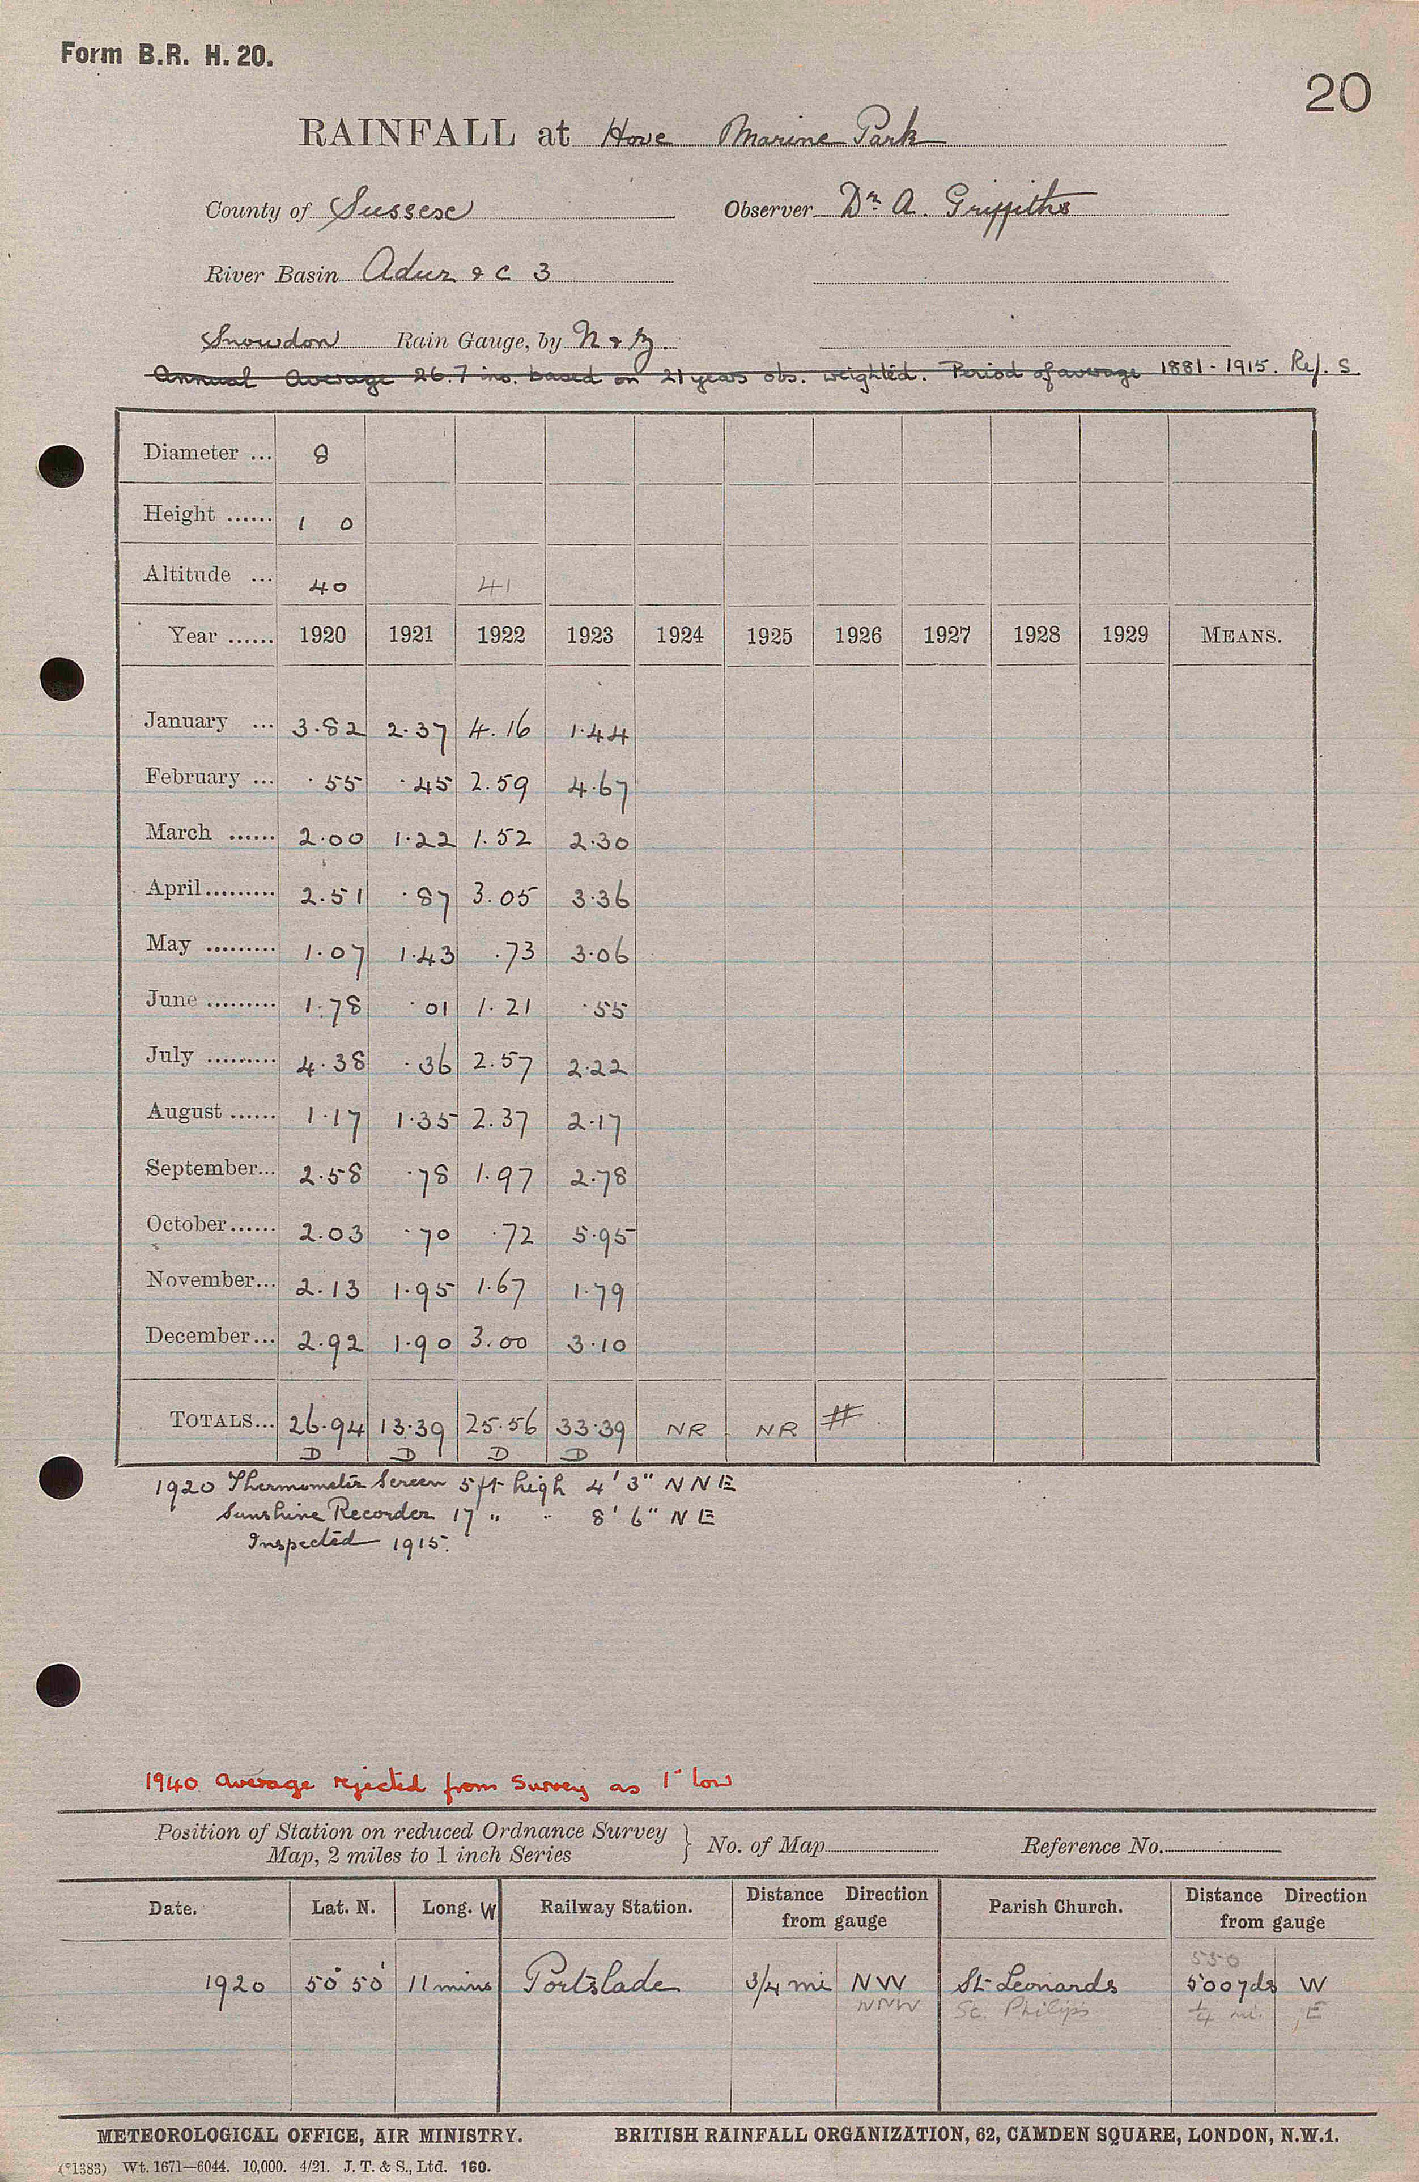 Form B.R. H. 20.
20
RAINFALL at Hove Marine Park
County of Sussex Observer Dr A. Griffiths
River Basin Adur &c 3
Snowdon Rain Gauge, by N & Z
Annual Average 26.7 ins. based on 21 years obs. weighted. Period of average 1881-1915. Ref. S
Diameter ... 8
Height ...... 1 0
Altitude ... 40 41
Year ...... 1920 1921 1922 1923 1924 1925 1926 1927 1928 1929 MEANS.
January ... 3.82 2.37 4.16 1.44
February ... .55 .45 2.59 4.67
March ...... 2.00 1.22 1.52 2.30
April ......... 2.51 .87 3.05 3.36
May ......... 1.07 1.43 .73 3.06
June ......... 1.78 .01 1.21 .55
July ......... 4.38 .36 2.57 2.22
August ...... 1.17 1.35 2.37 2.17
September... 2.58 .78 1.97 2.78
October...... 2.03 .70 .72 5.95
November... 2.13 1.95 1.67 1.79
December... 2.92 1.90 3.00 3.10
TOTALS... 26.94 13.39 25.56 33.39 NR NR #
D D D D
1920 Thermometer Screen 5 ft high 4' 3" NNE
Sunshine Recorder 17 " " 8' 6" NE
Inspected 1915.
1940 Average rejected from Survey as 1" low
Position of Station on reduced Ordnance Survey } No. of Map Reference No.
Map, 2 miles to 1 inch Series
Date. Lat. N. Long. W Railway Station. Distance Direction from gauge Parish Church. Distance Direction from gauge
550
1920 50° 50' 11 mins Portslade 3/4 mi NW St Leonards 500 yds W
NNW St. Philips 1/4 mi. E
METEOROLOGICAL OFFICE, AIR MINISTRY. BRITISH RAINFALL ORGANIZATION, 62, CAMDEN SQUARE, LONDON, N.W.1.
(*1383) Wt. 1671—6044. 10,000. 4/21. J. T. & S., Ltd. 160.